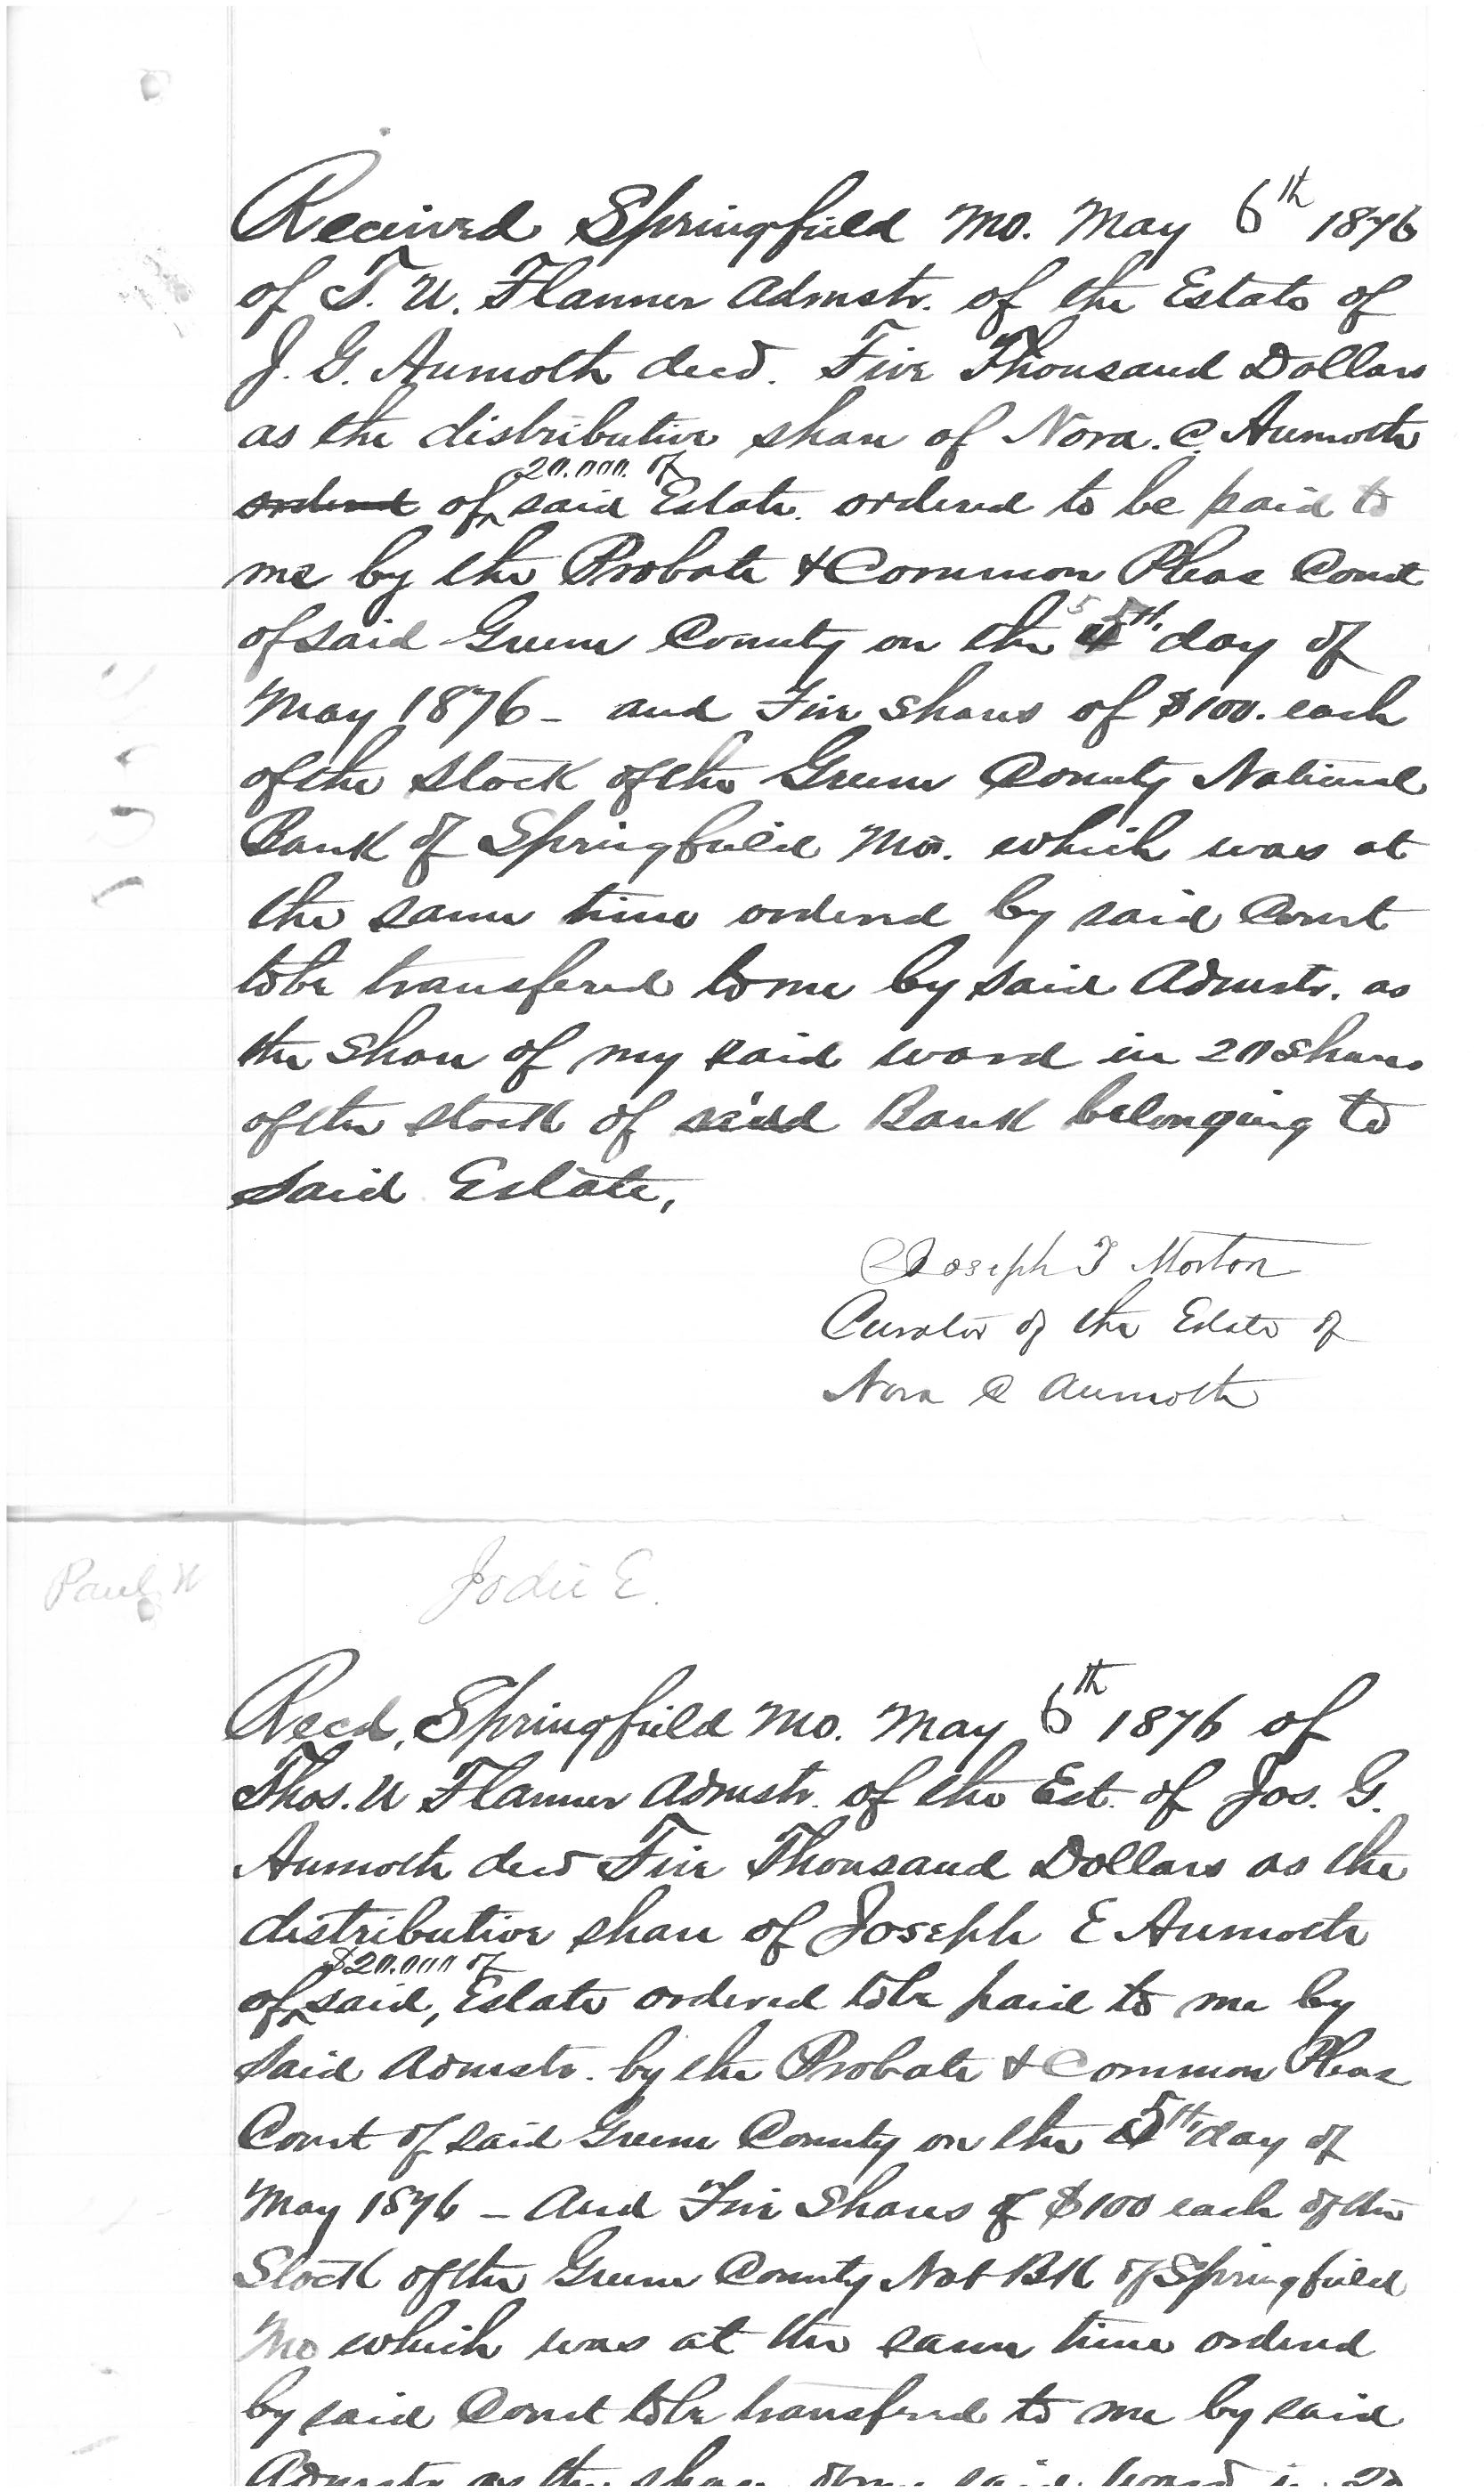 Received Springfield Mo. May 6th 1876
of T. U. Flanner Admstr. of the Estate of
J. G. Aumoth decd. Five Thousand Dollars
as the distributive share of Nora. C. Aumoth
ordered of 20.000. of said Estate. ordered to be paid to
me by the Probate & Common Pleas Court
of said Greene County on the 5th day of
May 1876 - and Five shares of $100. each
of the stock of the Greene County National
Bank of Springfield Mo. which was at
the same time ordered by said Court
to be transfered to me by said Admstr. as
the Share of my said ward in 20 Shares
of the stock of said Bank belonging to
said Estate,
Joseph T Morton
Curator of the Estate of
Nora C Aumoth
Paul H
Jodie E.
Recd, Springfield Mo. May 6th 1876 of
Thos. U Flanner Admstr. of the Est. of Jos. G.
Aumoth decd Five Thousand Dollars as the
distributive share of Joseph E Aumoth
of $20.000 of said, Estate ordered to be paid to me by
said Admstr. by the Probate & Common Pleas
Court of said Greene County on the 5th day of
May 1876 - And Five Shares of $100 each of the
Stock of the Greene County Nat Bk of Springfield
Mo which was at the same time ordered
by said Court to be transfered to me by said
Admstr as the share of my said Ward in 20